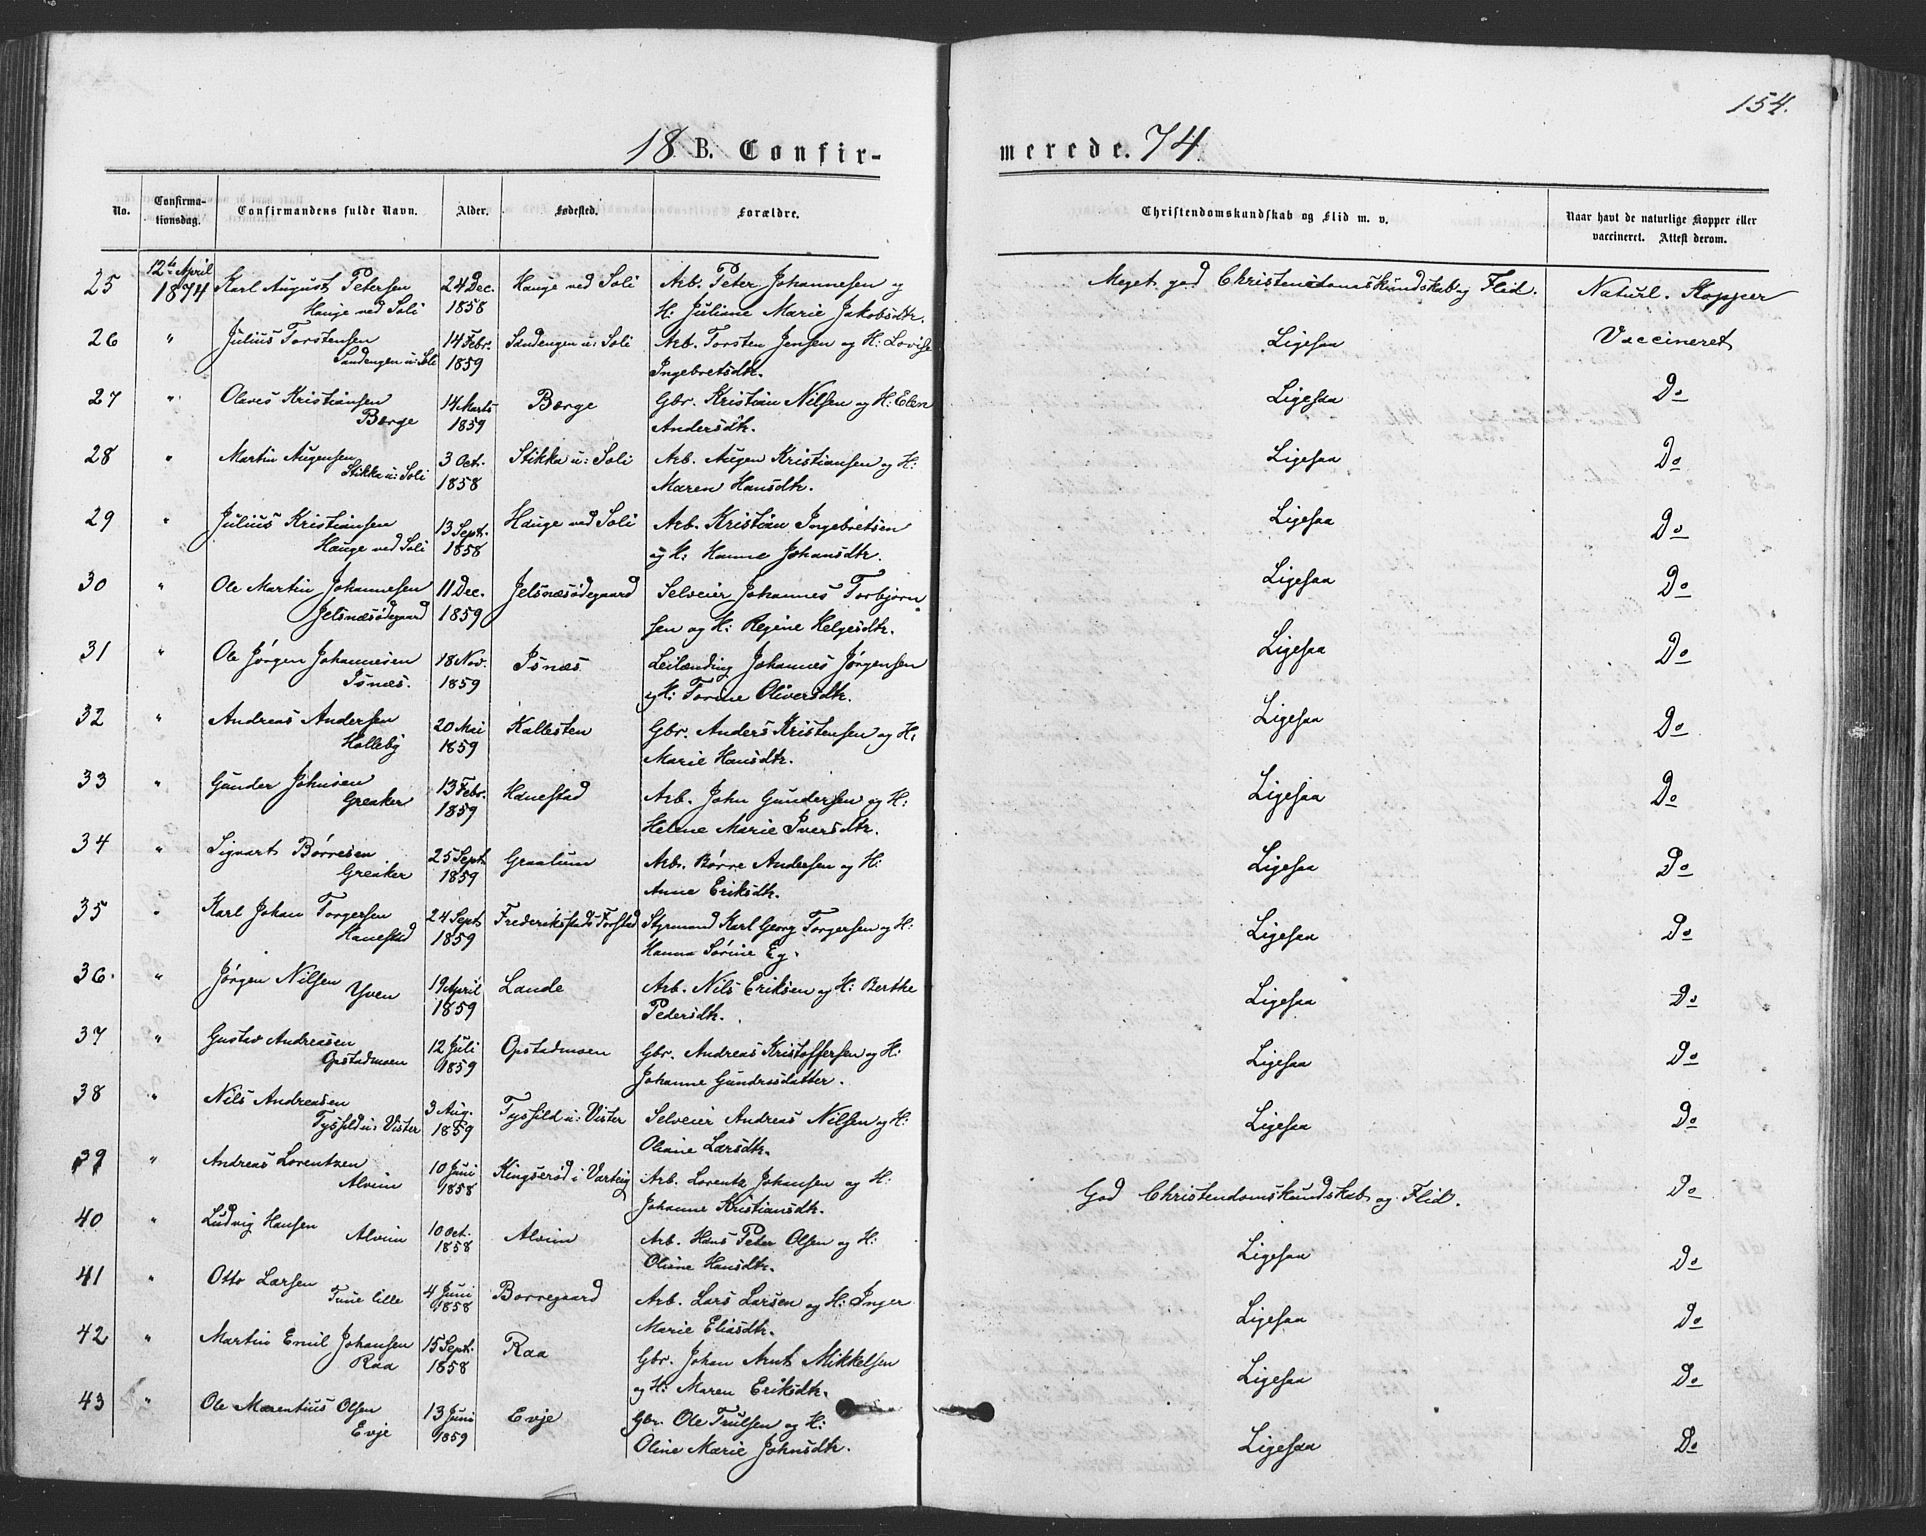 154.
18 B. Confir- merede. 74
No. Confirma-tionsdag. Confirmandens fulde Navn. Alder. Fødested. Forældre. Christendomskundskab og Flid m. v. Naar havt de naturlige Kopper eller vaccineret. Attest derom.
25 12te April 1874 Karl August Petersen 24 Dec. Hauge ved Soli Arb. Peter Johannesen og Meget god Christendomskundskab og Flid. Naturl. Kopper
Hauge ved Soli 1858 H: Juliane Marie Jakobsdtr.
26 " Julius Torstensen 14 Febr. Sandengen u: Soli Arb. Torsten Jensen og H: Lovise Ligesaa Vaccineret
Sandengen u: Soli 1859 Ingebretsdtr.
27 " Olaves Kristiansen 14 Marts Borge Gbr. Kristian Nilsen og H: Elen Ligesaa Do
Borge 1859 Andersdtr.
28 " Martin Augensen 3 Oct. Stikka u: Soli Arb. Augen Kristiansen og H: Ligesaa Do
Stikka u: Soli 1858 Maren Hansdtr.
29 " Julius Kristiansen 13 Sept. Hauge ved Soli Arb. Kristian Ingebretsen Ligesaa Do
Hauge ved Soli 1858 og H: Hanne Johansdtr.
30 " Ole Martin Johannesen 11 Dec. Jelsnæsødegaard Selveier Johannes Torbjørn- Ligesaa Do
Jelsnæsødegaard 1859 sen og H: Regine Helgesdtr.
31 " Ole Jørgen Johannesen 18 Nov. Isnæs Leilænding Johannes Jørgensen Ligesaa Do
Isnæs. 1859 og H: Torine Oliversdtr.
32 " Andreas Andersen 20 Mai Kallesten Gbr. Anders Kristensen og H: Ligesaa Do
Holleby 1859 Marie Hansdtr.
33 " Gunder Johnsen 13 Febr. Hanestad Arb. John Gundersen og H: Ligesaa Do
Greaker 1859 Helene Marie Iversdtr.
34 " Sigvart Børresen 25 Sept. Graalum Arb. Børre Andersen og H: Ligesaa Do
Greaker 1859 Anne Eriksdtr.
35 " Karl Johan Torgersen 24 Sept. Frederikstads Forstad Styrmand Karl Georg Torgersen og H: Ligesaa Do
Hanestad 1859 Hanna Sørine Eg.
36. " Jørgen Nilsen 19 April Lande Arb. Nils Eriksen og H: Berthe Ligesaa Do
Yven 1859 Pedersdtr.
37 " Gustav Andreasen 12 Juli Opstadmoen Gbr. Andreas Kristoffersen og H: Ligesaa Do
Opstadmoen 1859 Johanne Gundersdatter.
38 " Nils Andreasen 3 Aug. Tysfild u: Vister Selveier Andreas Nilsen og H: Ligesaa Do
Tysfild u: Vister 1859 Oliane Larsdtr.
39 " Andreas Lorentzen 10 Juni Kingserød i Varteig Arb. Lorentz Johansen og H: God Christendomskundskab og Flid. Do
Alvim 1858 Johanne Kristiansdtr.
40 " Ludvig Hansen 10 Oct. Alvim Arb. Hans Peter Olsen og H: Ligesaa Do
Alvim 1858 Oliane Hansdtr.
41 " Otto Larsen 4 Juni Borregaard Arb. Lars Larsen og H: Inger Ligesaa Do
Tune lille 1858 Marie Eliasdtr.
42 " Martin Emil Johansen 15 Sept. Raa Gbr. Johan Arnt Mikkelsen Ligesaa Do
Raa 1858 og H: Maren Eriksdtr.
43 " Ole Marentius Olsen 13 Juni Evje Gbr. Ole Trulsen og H: Ligesaa Do
Evje 1859 Oline Marie Johnsdtr.